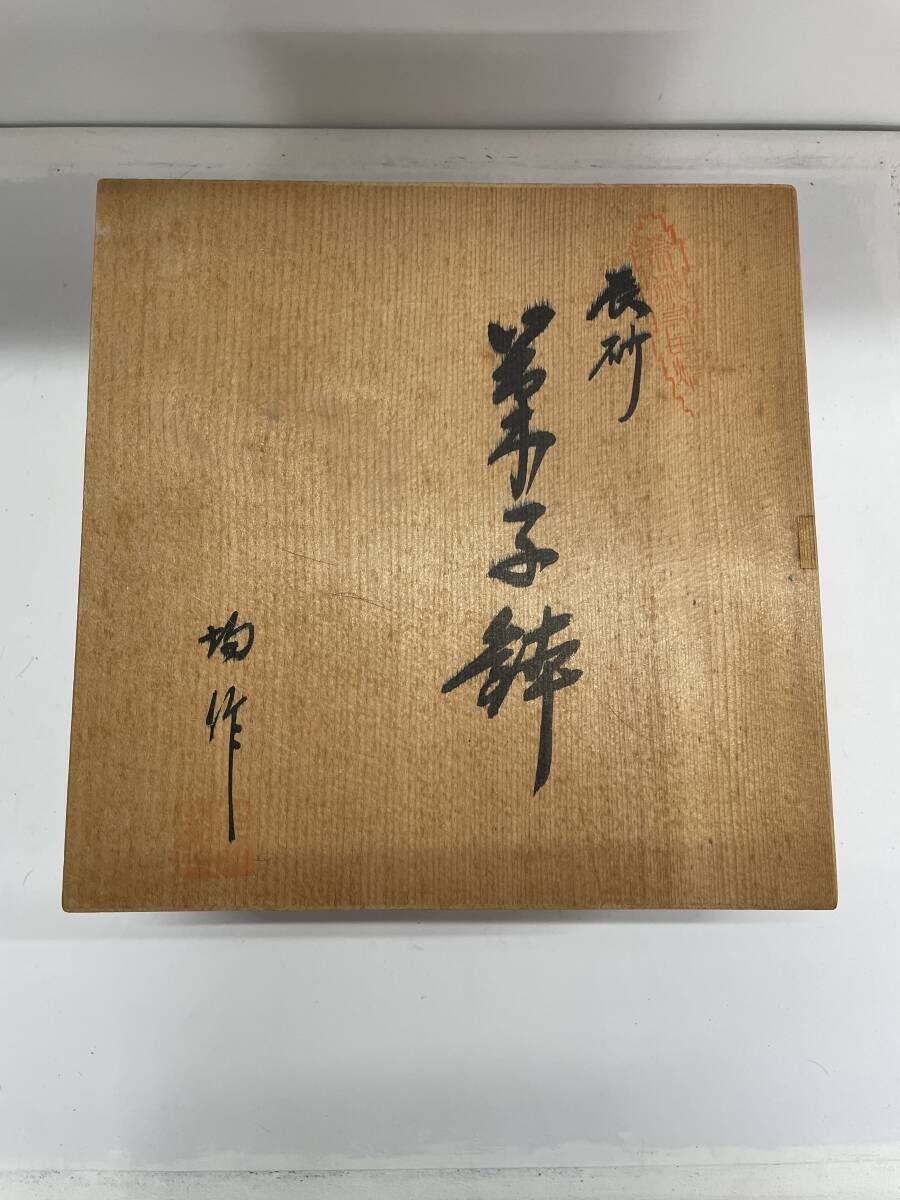 辰砂
菓子鉢
均作